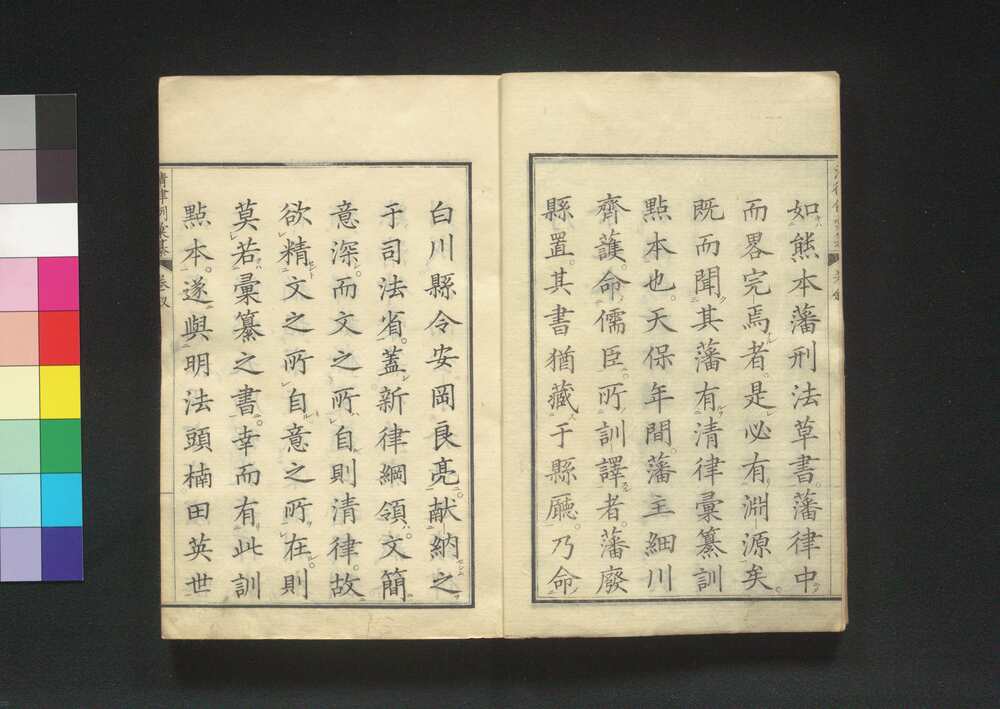 如熊本藩刑法草書。藩律中
而畧完焉者。是必有淵源矣。
既而聞其藩有清律彙纂訓
點本也。天保年間。藩主細川
齊護。命儒臣。所訓譯者。藩廢
縣置。其書猶藏于縣廳。乃命
白川縣令安岡良亮。献納之
于司法省。蓋新律綱領。文簡
意深。而文之所自則清律。故
欲精文之所自意之所在。則
莫若彙纂之書。幸而有此訓
點本。遂與明法頭楠田英世